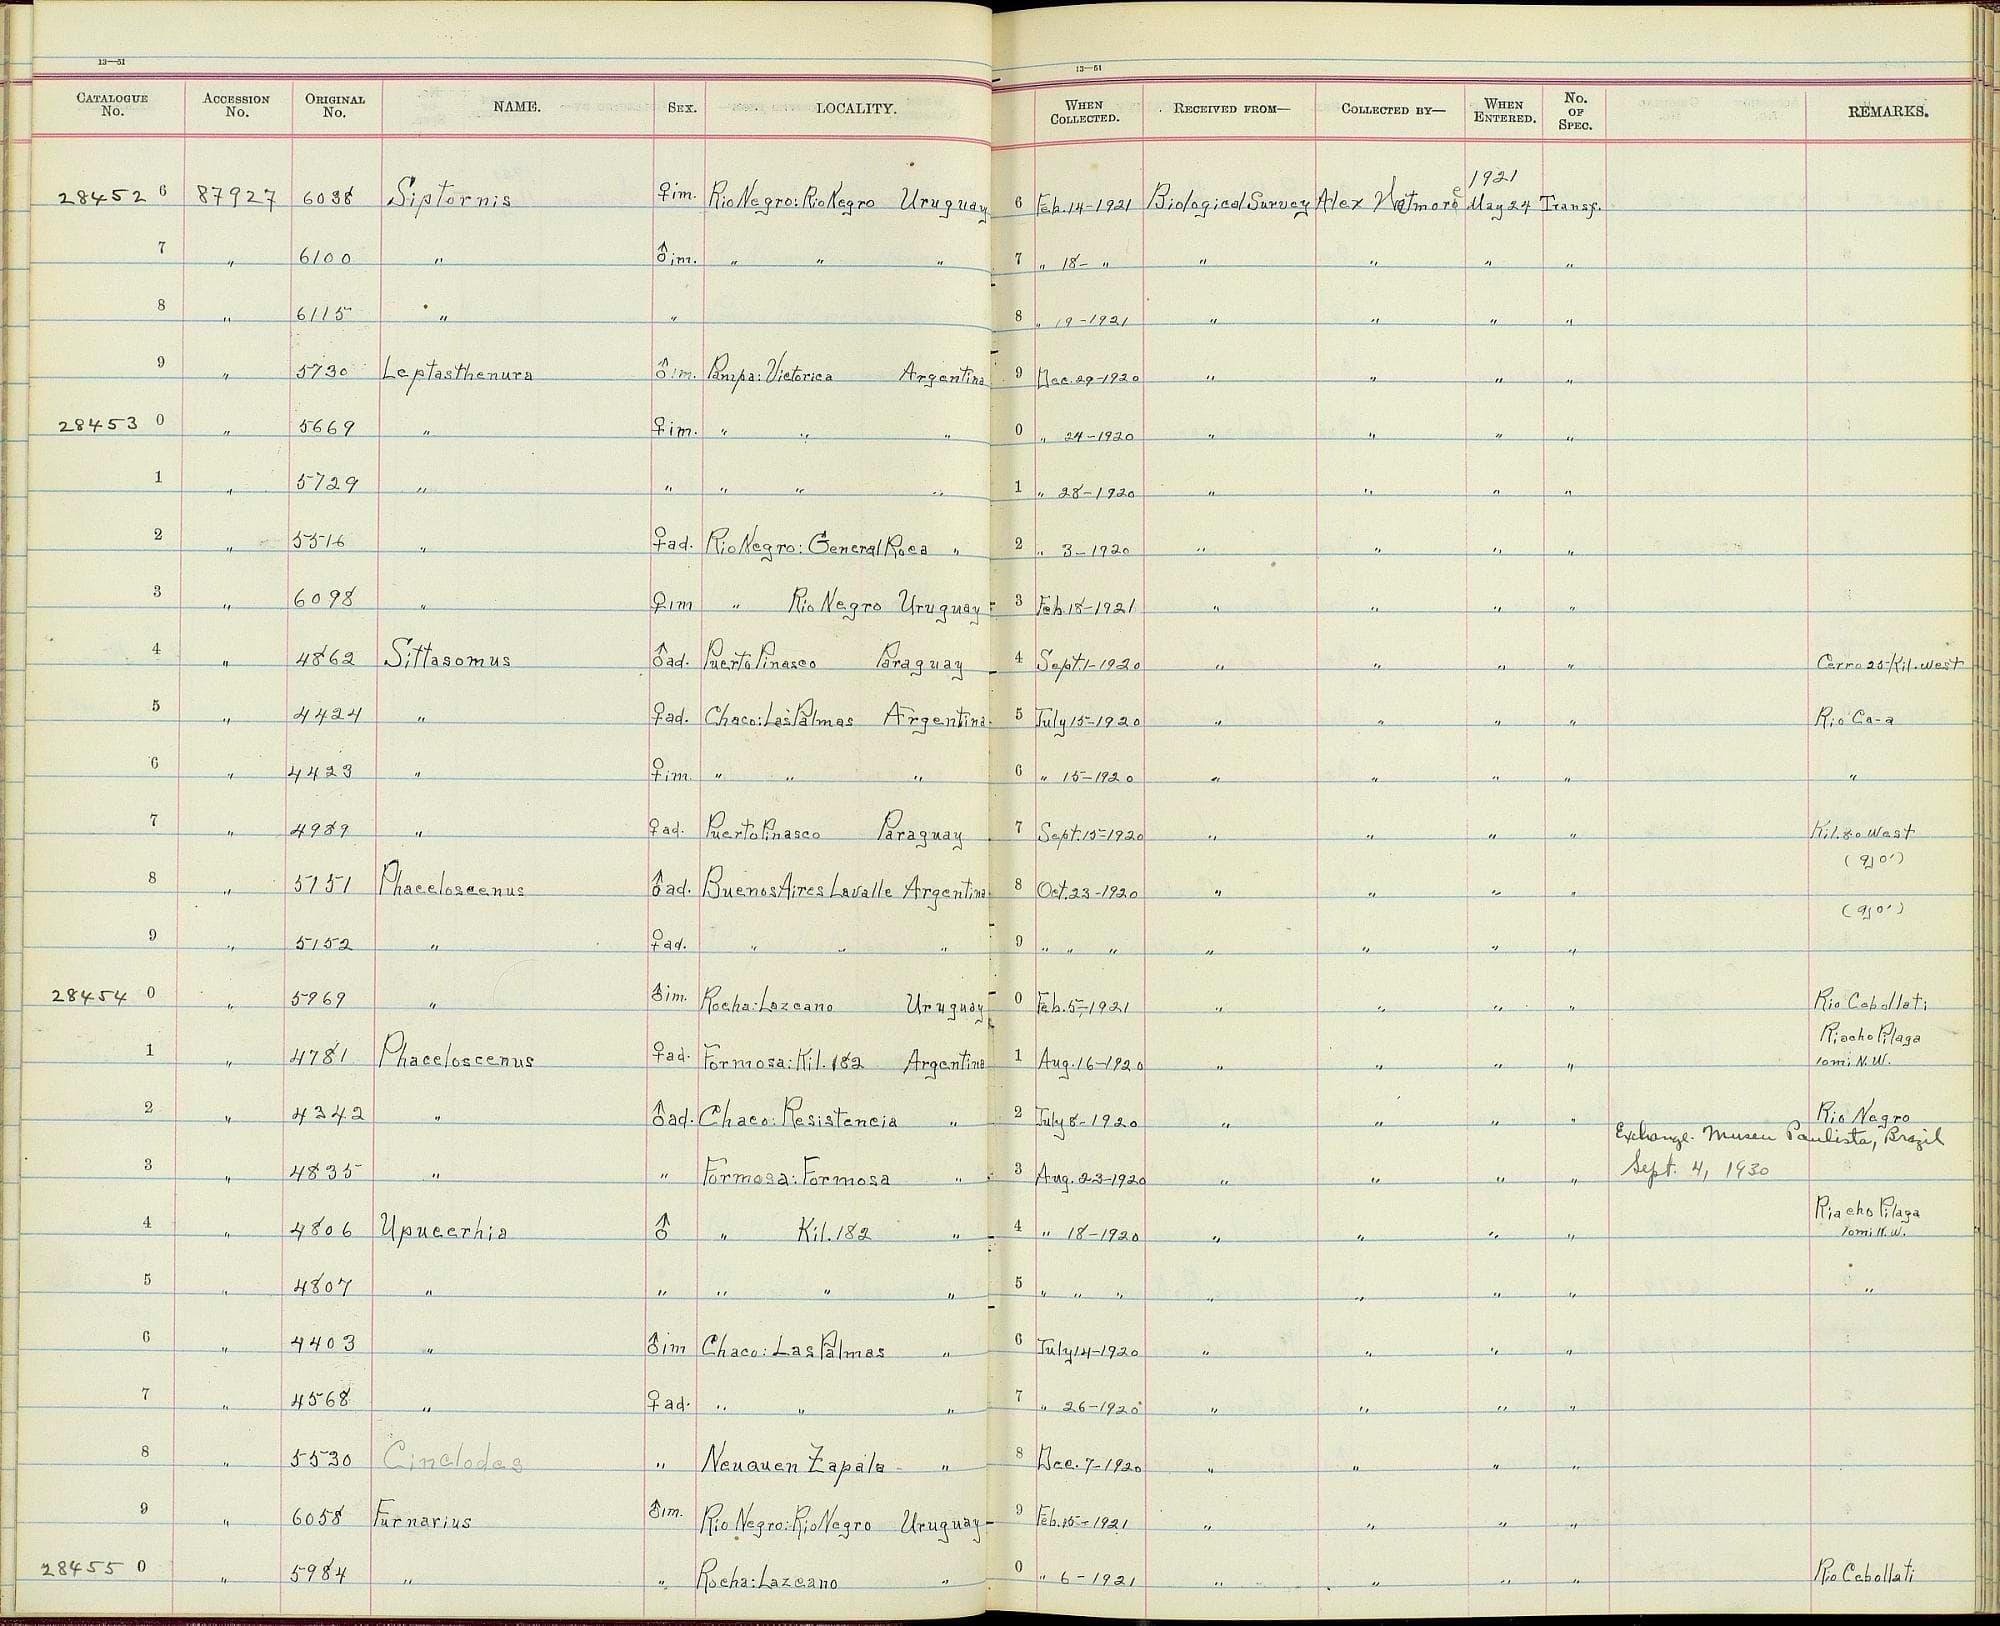 13—51 13—51
CATALOGUE No. ACCESSION No. ORIGINAL No. NAME. SEX. LOCALITY. WHEN COLLECTED. RECEIVED FROM— COLLECTED BY— WHEN ENTERED. No. OF SPEC. REMARKS.
1921
28452 6 87927 6038 Siptornis ♀im. Rio Negro: Rio Negro Uruguay 6 Feb. 14-1921 Biological Survey Alex Wetmore May 24 Transf.
7 " 6100 " ♂im. " " " 7 " 18- " " " " "
8 " 6115 " " 8 " 19-1921 " " " "
9 " 5730 Leptasthenura ♂im. Pampa: Victorica Argentina 9 Dec. 29-1920 " " " "
28453 0 " 5669 " ♀im. " " " 0 " 24-1920 " " " "
1 " 5729 " " " " " 1 " 28-1920 " " " "
2 " 5516 " ♀ad. Rio Negro: General Roca " 2 " 3-1920 " " " "
3 " 6098 " ♀im " Rio Negro Uruguay 3 Feb. 18-1921 " " " "
4 " 4862 Sittasomus ♂ad. Puerto Pinasco Paraguay 4 Sept. 1-1920 " " " " Cerro 25-Kil. west
5 " 4424 " ♀ad. Chaco: Las Palmas Argentina 5 July 15-1920 " " " " Rio Ca-a
6 " 4423 " ♀im. " " " 6 " 15-1920 " " " " "
7 " 4989 " ♀ad. Puerto Pinasco Paraguay 7 Sept. 15-1920 " " " " Kil. 80 West
8 " 5151 Phaceloscenus ♂ad. Buenos Aires Lavalle Argentina 8 Oct. 23-1920 " " " "
9 " 5152 " ♀ad. " " " 9 " " " " " " "
28454 0 " 5969 " ♂im. Rocha: Lazcano Uruguay 0 Feb. 5-1921 " " " " Rio Cebollati
1 " 4781 Phaceloscenus ♀ad. Formosa: Kil. 182 Argentina 1 Aug. 16-1920 " " " " Riacho Pilaga
10 mi. N.W.
2 " 4342 " ♂ad. Chaco: Resistencia " 2 July 8-1920 " " " " Rio Negro
Exchange. Museu Paulista, Brazil
3 " 4835 " " Formosa: Formosa " 3 Aug. 23-1920 " " " " Sept. 4, 1930
4 " 4806 Upucerhia ♂ " Kil. 182 " 4 " 18-1920 " " " " Riacho Pilaga
10 mi. N.W.
5 " 4807 " " " " " 5 " " " " " " " "
6 " 4403 " ♂im Chaco: Las Palmas " 6 July 14-1920 " " " "
7 " 4568 " ♀ad. " " " 7 " 26-1920 " " " "
8 " 5530 Cinclodes " Neuquen Zapala " 8 Dec. 7-1920 " " " "
9 " 6058 Furnarius ♂im. Rio Negro: Rio Negro Uruguay 9 Feb. 15-1921 " " " "
28455 0 " 5984 " " Rocha: Lazcano " 0 " 6-1921 " " " " Rio Cebollati